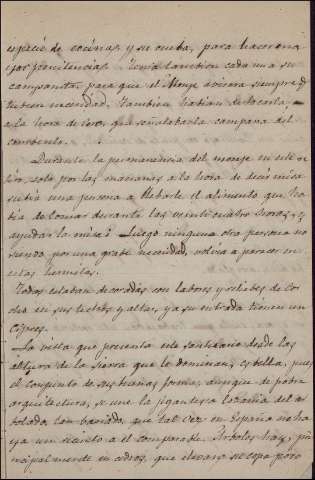 especie de cocinas y su cueba, para hacer ma-
yores penitencias. Tenia tambien cada una su
campanita para que el Monge avisara siempre q.
tubiera necesidad. Tambien habian de tocarla,
a la hora de Coro, que señalaba la campana del
combento.
Durante la permanencia del monge en este
solo por las mañanas a la hora de decir misa
subia una persona a llebarle el alimento que ha-
bia de tomar durante las veinticuatro horas, y
ayudar la misa: Luego ninguna otra persona no
siendo, por una grabe necesidad, volvia a parecer en
estas hermitas.
Todas estaban decoradas con labores y reliebes de Cor-
cho en sus techos y altar, y a su entrada tienen un
Cipres.
La vista que presenta este santuario desde las
alturas de la sierra que le dominan, es bella, pues
el conjunto de sus barias formas, aunque de pobre
arquitectura, se une la jigantesca lozania del ar-
bolado, tan bariado, que tal vez en España no ha-
ya un desierto a el comparable. Arboles hay, prin-
cipalmente en cedros, que elevan su copa poco